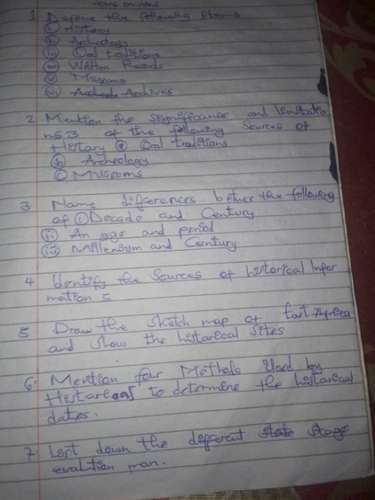 1 Define the following terms
(i) History
(ii) Archeology
(iii) Oral traditions
(iv) Written Records
(v) Museums
(vi) Archives
2 Mention the significance and limitatio
ns 3 of the following sources of
History (a) Oral traditions
(b) Archeology
(c) Museoms
3 Name differences between the following
of (i) Decade and Century
(ii) An age and period
(iii) Millenium and Century
4 Identify the Sources of historical Infor
mation 5
5 Draw the sketch map of East Africa
and show the historical sites
6 Mention four Methods Used by
Historians to determine the historical
dates.
7 List down the different stage
evalution man.